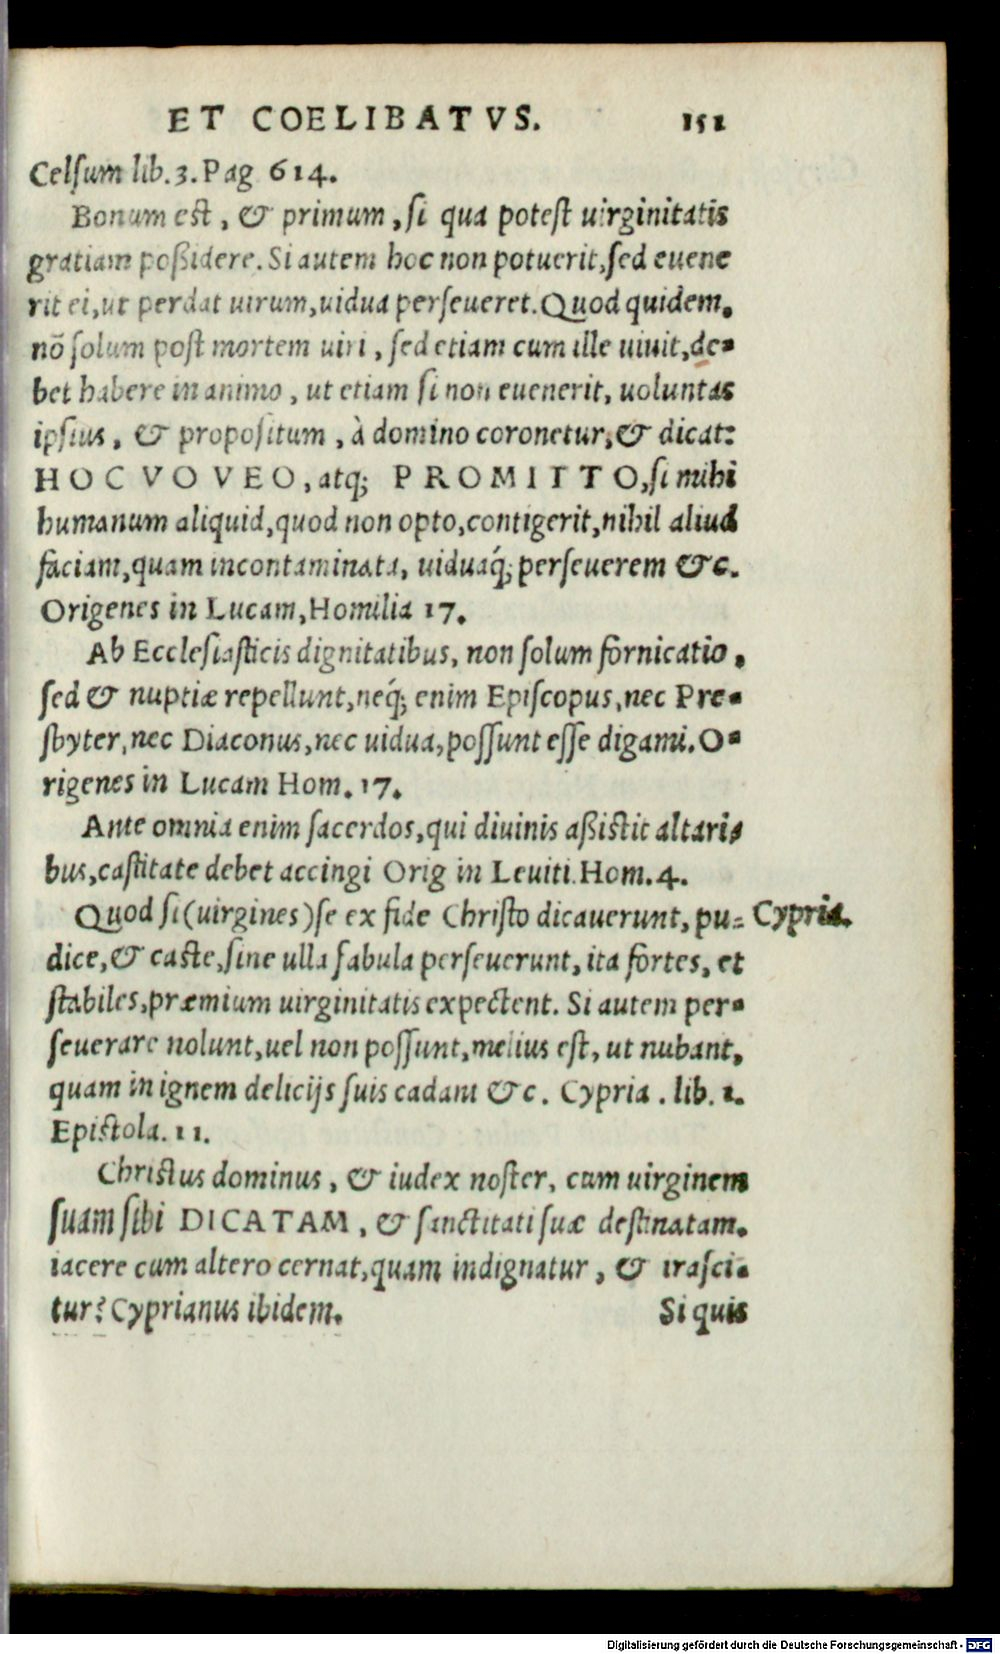 ET COELIBATVS. 151
Celſum lib. 3. Pag 614.
Bonum eſt, & primum, ſi qua poteſt uirginitatis
gratiam poßidere. Si autem hoc non potuerit, ſed euene
rit ei, ut perdat uirum, uidua perſeueret. Quod quidem.
nõ ſolum poſt mortem uiri, ſed etiam cum ille uiuit, de-
bet habere in animo, ut etiam ſi non euenerit, uoluntas
ipſius, & propoſitum, à domino coronetur, & dicat:
HOC VOVEO, atq; PROMITTO, ſi mihi
humanum aliquid, quod non opto, contigerit, nihil aliud
faciam, quam incontaminata, uiduaq́; perſeuerem &c.
Origenes in Lucam, Homilia 17.
Ab Eccleſiaſticis dignitatibus, non ſolum fornicatio,
ſed & nuptiæ repellunt, neq́; enim Epiſcopus, nec Pre-
ſbyter, nec Diaconus, nec uidua, poſſunt eſſe digami. O-
rigenes in Lucam Hom. 17.
Ante omnia enim ſacerdos, qui diuinis aßiſtit altaris
bus, caſtitate debet accingi Orig in Leuiti. Hom. 4.
Quod ſi (uirgines) ſe ex fide Chriſto dicauerunt, pu= Cypria.
dice, & caſte, ſine ulla fabula perſeuerunt, ita fortes, et
ſtabiles, præmium uirginitatis expectent. Si autem per-
ſeuerare nolunt, uel non poſſunt, melius eſt, ut nubant,
quam in ignem delicijs ſuis cadant &c. Cypria. lib. 1.
Epiſtola. 11.
Chriſtus dominus, & iudex noſter, cum uirginem
ſuam ſibi DICATAM, & ſanctitati ſuæ deſtinatam.
iacere cum altero cernat, quam indignatur, & iraſci-
tur? Cyprianus ibidem.
Si quis
Digitalisierung gefördert durch die Deutsche Forschungsgemeinschaft - DFG